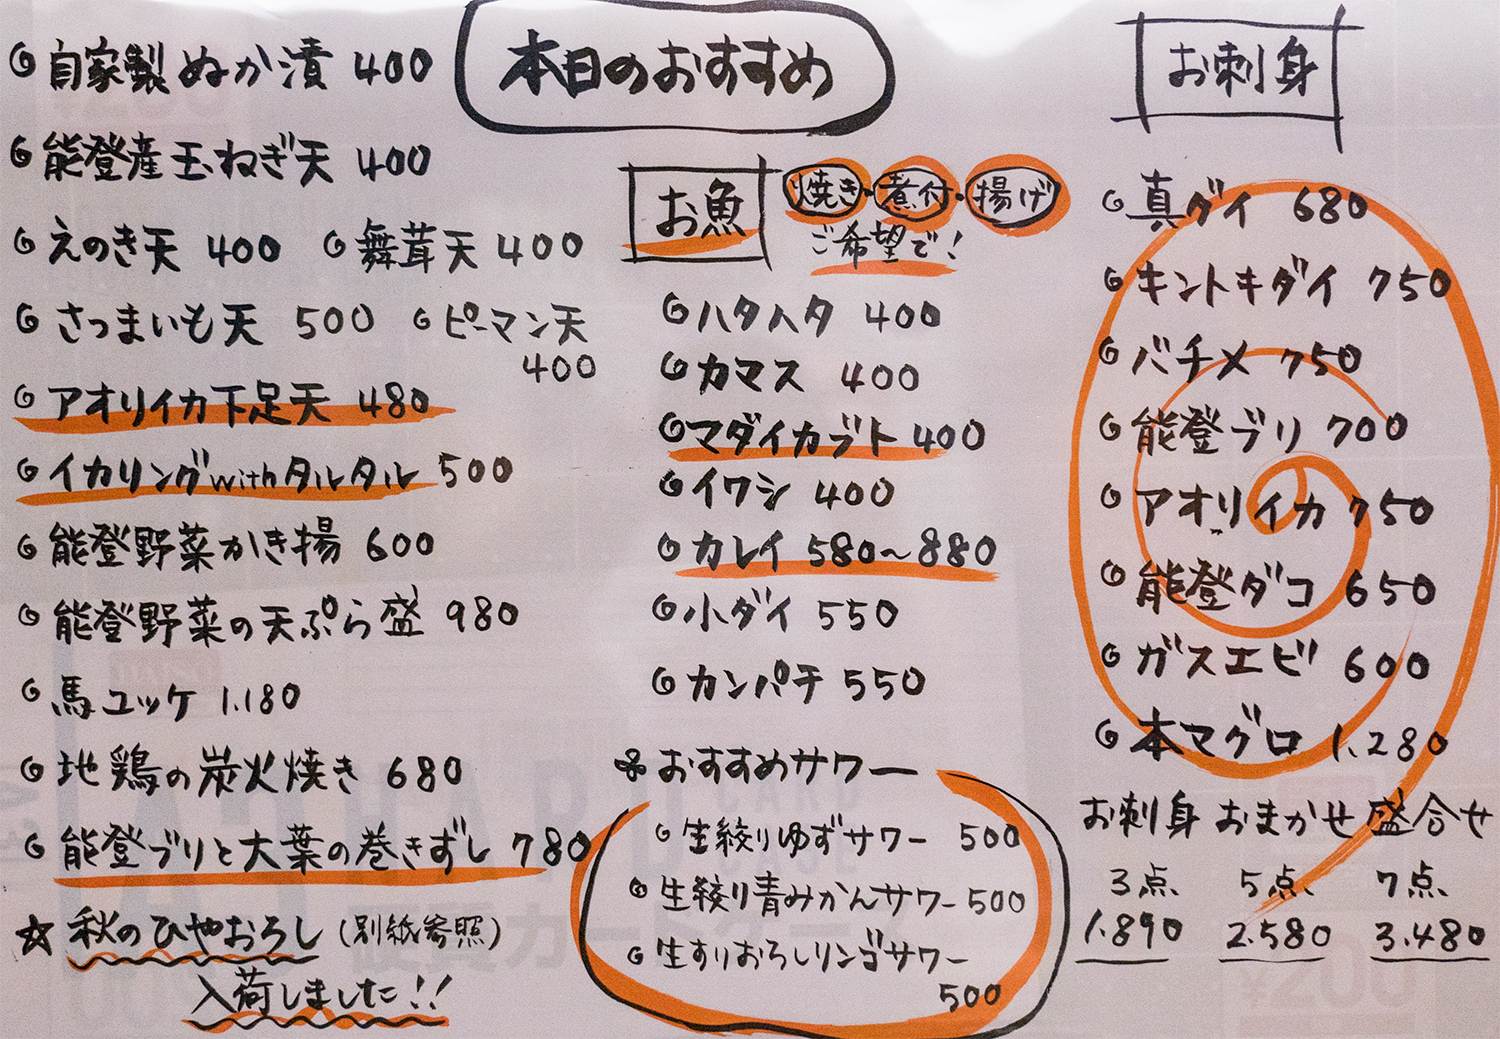 本日のおすすめ
自家製ぬか漬 400
能登産玉ねぎ天 400
えのき天 400
舞茸天 400
さつまいも天 500
ピーマン天
400
アオリイカ下足天 480
イカリングwithタルタル 500
能登野菜かき揚 600
能登野菜の天ぷら盛 980
馬ユッケ 1.180
地鶏の炭火焼き 680
能登ブリと大葉の巻きずし 780
☆ 秋のひやおろし (別紙参照)
入荷しました!!
お魚
焼き・煮付・揚げ
ご希望で!
ハタハタ 400
カマス 400
マダイカブト 400
イワシ 400
カレイ 580~880
小ダイ 550
カンパチ 550
おすすめサワー
生絞りゆずサワー 500
生絞り青みかんサワー 500
生すりおろしリンゴサワー
500
お刺身
真ダイ 680
キントキダイ 750
バチメ 750
能登ブリ 700
アオリイカ 750
能登ダコ 650
ガスエビ 600
本マグロ 1.280
お刺身 おまかせ 盛合せ
3点 5点 7点
1.890 2.580 3.480